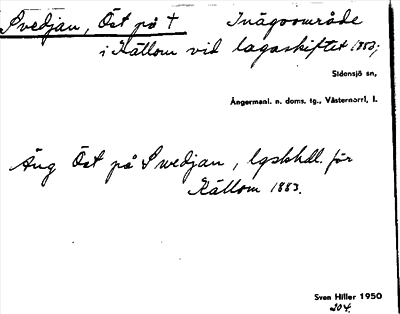 Svedjan, Öst på † Inägoområde
i Källom vid lagaskiftet 1883;
Sidensjö sn,
Ångermanl. n. doms. tg., Västernorrl. l.
Äng Öst på Swedjan, lgskhdl. för
Källom 1883.
Sven Hiller 1950
204.